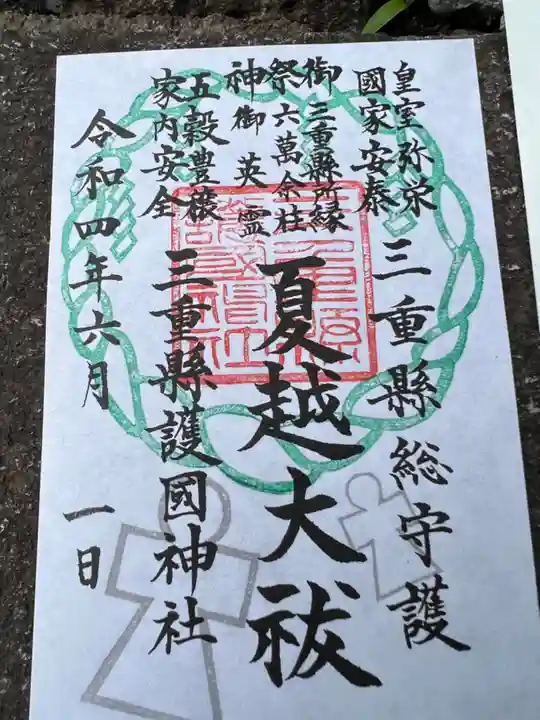 皇室弥栄
國家安泰
三重縣総守護
御祭神
三重縣所縁
六萬余柱
御英霊
夏越大祓
五穀豊穣
家内安全
三重縣護國神社
令和四年六月一日